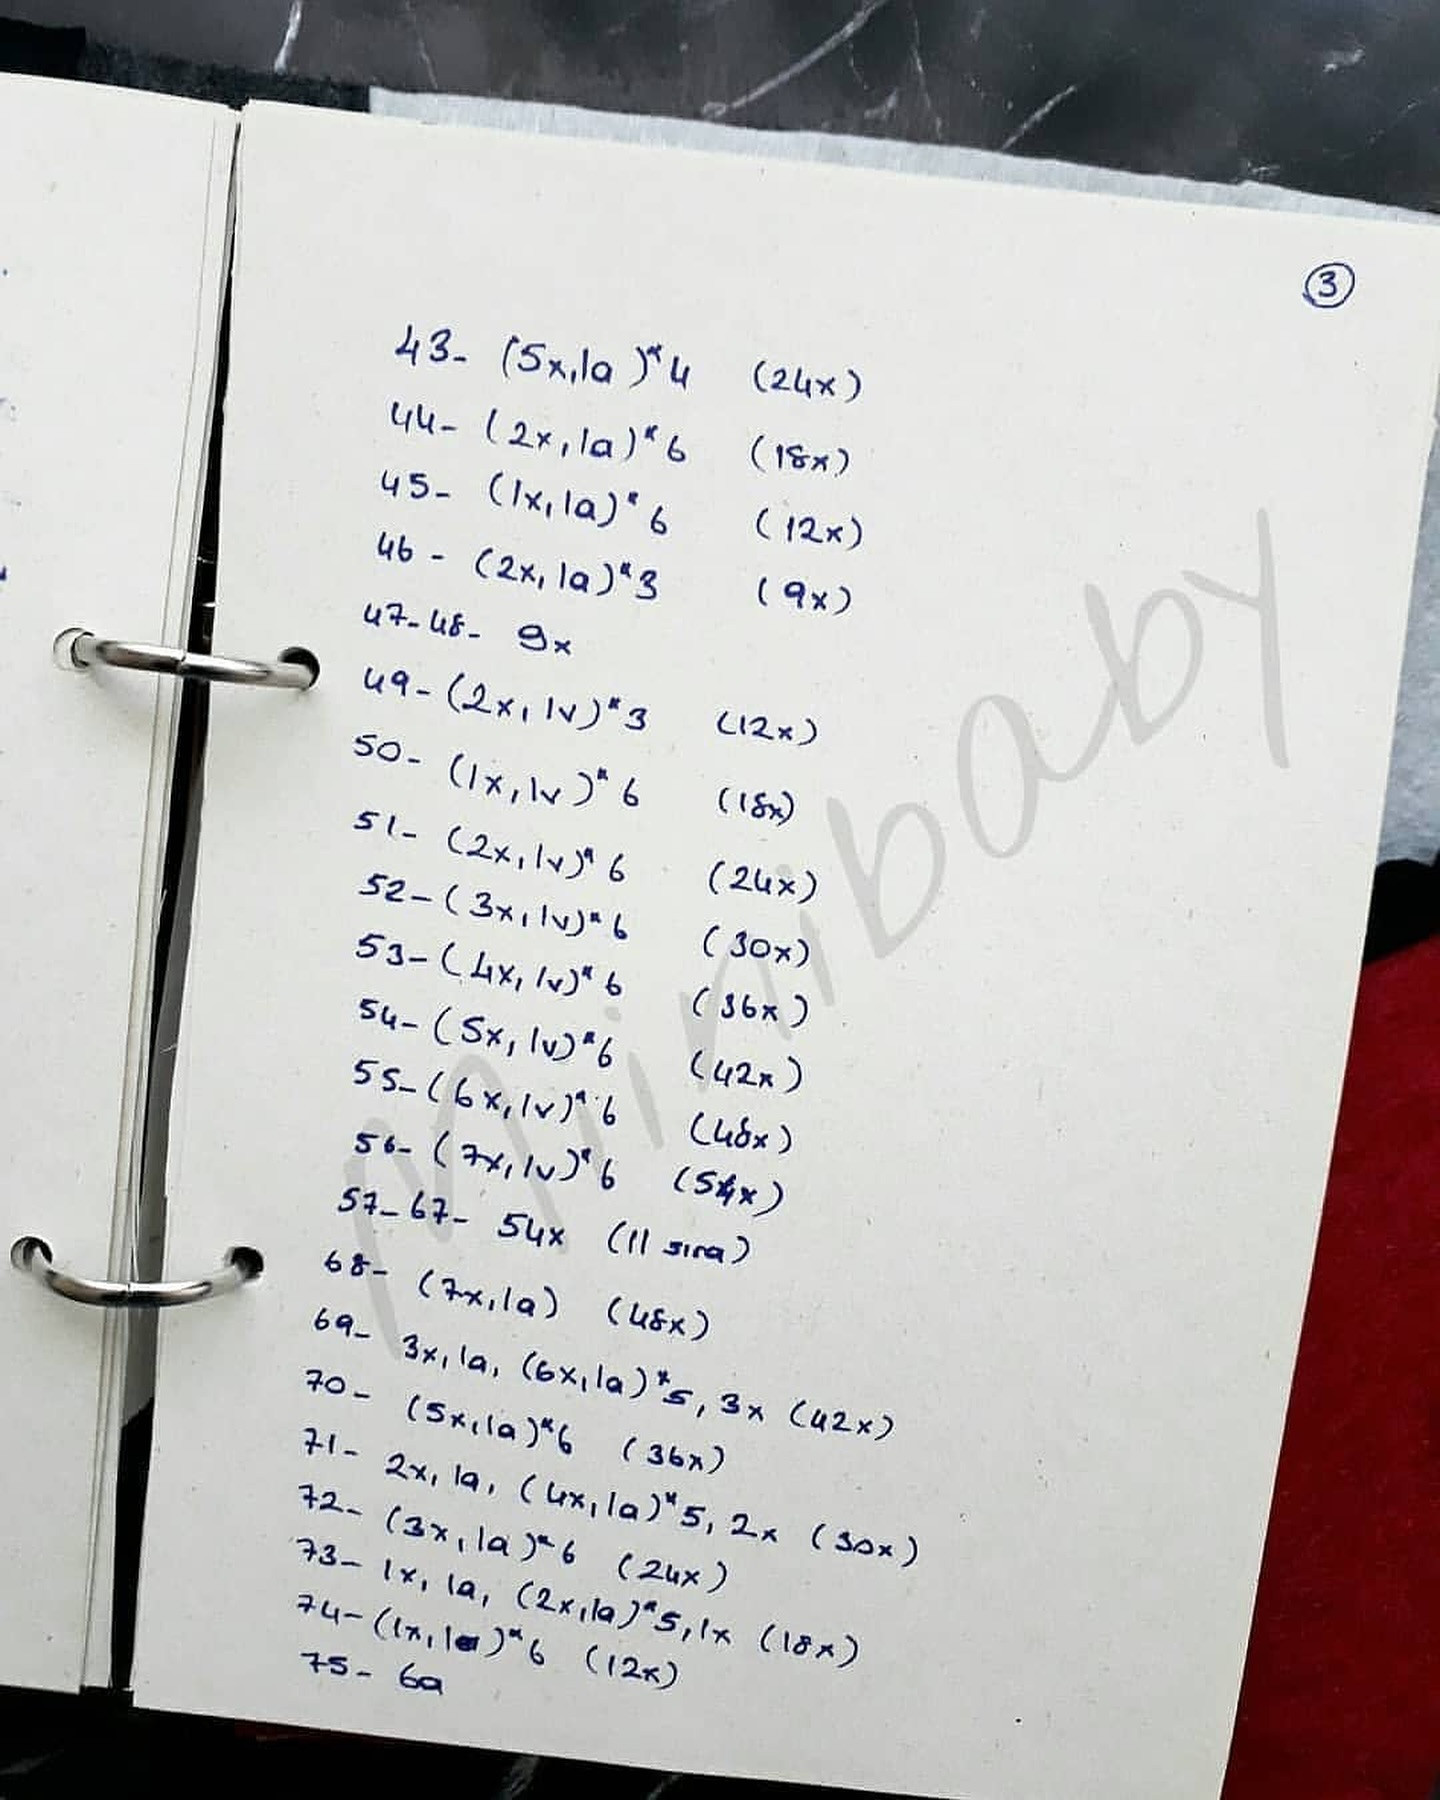 3
43- (5x,1a)*4 (24x)
44- (2x,1a)*6 (18x)
45- (1x,1a)*6 (12x)
46- (2x,1a)*3 (9x)
47-48- 9x
49- (2x,1v)*3 (12x)
50- (1x,1v)*6 (18x)
51- (2x,1v)*6 (24x)
52- (3x,1v)*6 (30x)
53- (4x,1v)*6 (36x)
54- (5x,1v)*6 (42x)
55- (6x,1v)*6 (48x)
56- (7x,1v)*6 (54x)
57-67- 54x (11 sıra)
68- (7x,1a) (48x)
69- 3x,1a, (6x,1a)*5, 3x (42x)
70- (5x,1a)*6 (36x)
71- 2x, 1a, (4x,1a)*5, 2x (30x)
72- (3x,1a)*6 (24x)
73- 1x, 1a, (2x,1a)*5, 1x (18x)
74- (1x,1a)*6 (12x)
75- 6a
Miinibaby